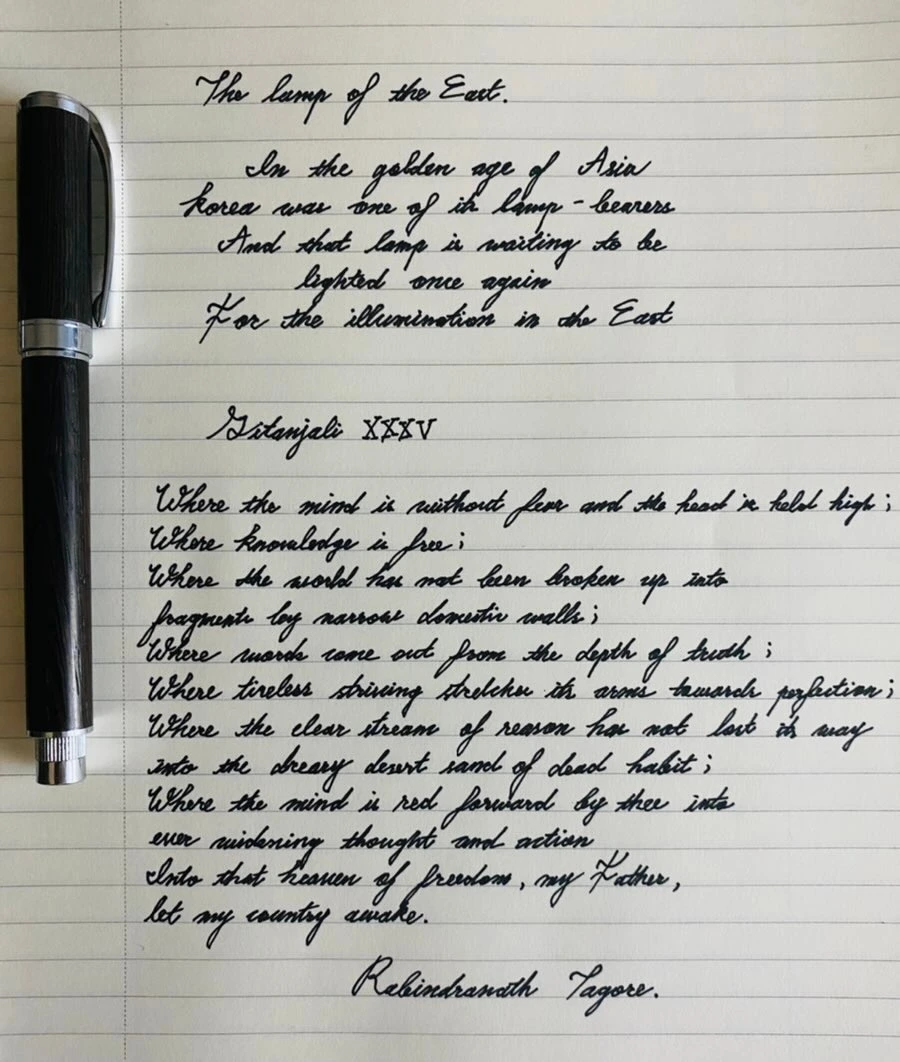 The lamp of the East.
In the golden age of Asia
Korea was one of its lamp-bearers
And that lamp is waiting to be
lighted once again
For the illumination in the East
Gitanjali XXXV
Where the mind is without fear and the head is held high;
Where knowledge is free;
Where the world has not been broken up into
fragments by narrow domestic walls;
Where words come out from the depth of truth;
Where tireless striving stretches its arms towards perfection;
Where the clear stream of reason has not lost its way
into the dreary desert sand of dead habit;
Where the mind is red forward by thee into
ever widening thought and action
Into that heaven of freedom, my Father,
let my country awake.
Rabindranath Tagore.